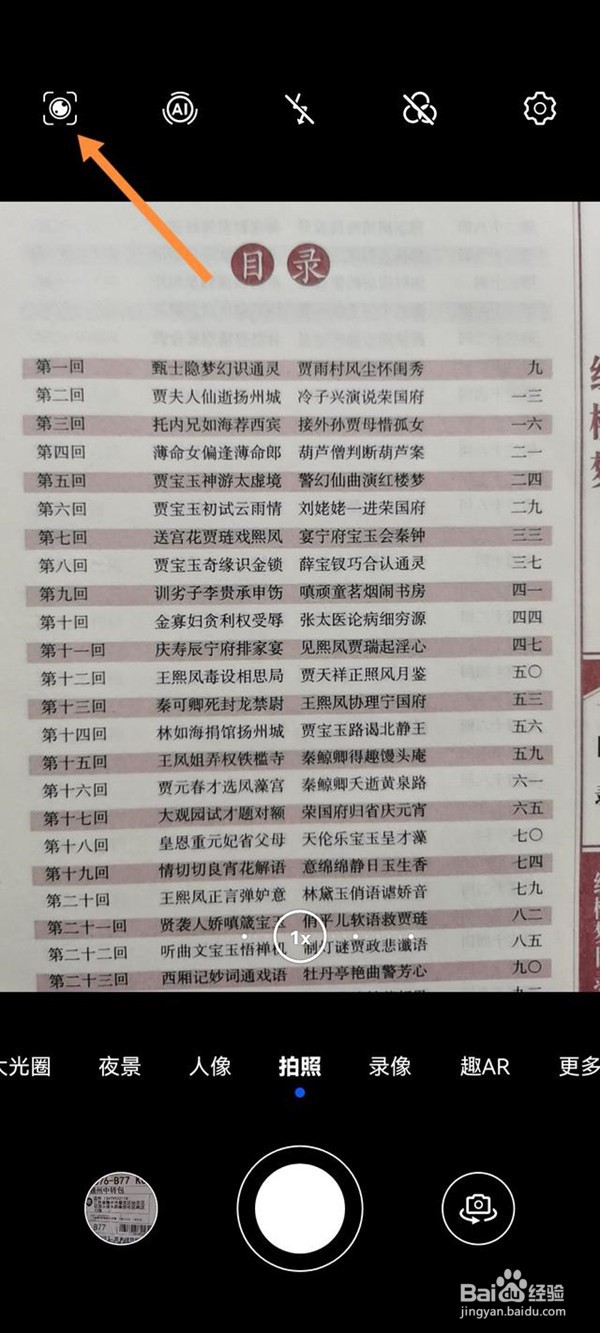 AI
目录
第一回 甄士隐梦幻识通灵 贾雨村风尘怀闺秀 九
第二回 贾夫人仙逝扬州城 冷子兴演说荣国府 一三
第三回 托内兄如海荐西宾 接外孙贾母惜孤女 一六
第四回 薄命女偏逢薄命郎 葫芦僧判断葫芦案 二一
第五回 贾宝玉神游太虚境 警幻仙曲演红楼梦 二四
第六回 贾宝玉初试云雨情 刘姥姥一进荣国府 二九
第七回 送宫花贾琏戏熙凤 宴宁府宝玉会秦钟 三三
第八回 贾宝玉奇缘识金锁 薛宝钗巧合认通灵 三七
第九回 训劣子李贵承申饬 嗔顽童茗烟闹书房 四一
第十回 金寡妇贪利权受辱 张太医论病细穷源 四四
第十一回 庆寿辰宁府排家宴 见熙凤贾瑞起淫心 四七
第十二回 王熙凤毒设相思局 贾天祥正照风月鉴 五〇
第十三回 秦可卿死封龙禁尉 王熙凤协理宁国府 五三
第十四回 林如海捐馆扬州城 贾宝玉路谒北静王 五六
第十五回 王凤姐弄权铁槛寺 秦鲸卿得趣馒头庵 五九
第十六回 贾元春才选凤藻宫 秦鲸卿夭逝黄泉路 六一
第十七回 大观园试才题对额 荣国府归省庆元宵 六五
第十八回 皇恩重元妃省父母 天伦乐宝玉呈才藻 七〇
第十九回 情切切良宵花解语 意绵绵静日玉生香 七四
第二十回 王熙凤正言弹妒意 林黛玉俏语谑娇音 七九
第二十一回 贤袭人娇嗔箴宝玉 俏平儿软语救贾琏 八二
第二十二回 听曲文宝玉悟禅机 制灯谜贾政悲谶语 八五
第二十三回 西厢记妙词通戏语 牡丹亭艳曲警芳心 九〇
1x
大光圈 夜景 人像 拍照 录像 趣AR 更多
B77
Baidu经验
jingyan.baidu.com